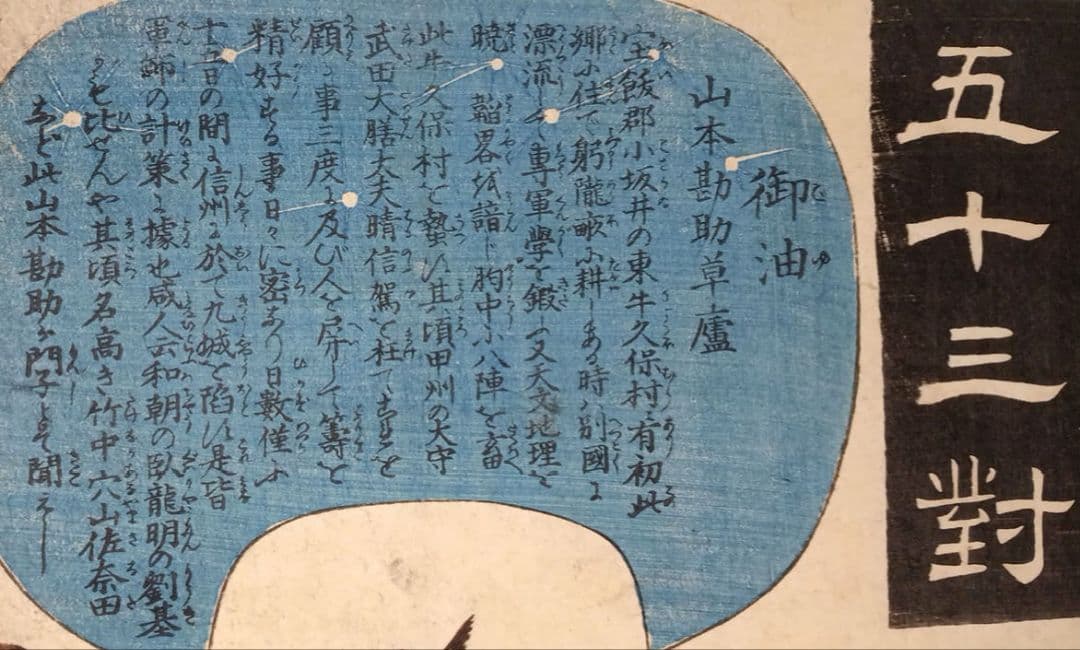 五十三對
御油
山本勘助草廬
宝飯郡小坂井の東牛久保村に有初此
郷に住て躬隴畝に耕しある時ハ別國に
漂流して専軍學を鍛へ又天文地理を
暁し韜畧を諳じ胸中に八陣を畜へ
此牛久保村を蟄す其頃甲州の大守
武田大膳太夫晴信駕を枉て草廬を
顧る事三度に及び人を屏して籌を
精好する事日々に密なり日數僅に
十五日の間に信州に於て九城を陷す是皆
軍師の計策に據也或人云和朝の臥龍明の劉基
にも比せんや其頃名高き竹中穴山佐奈田
など此山本勘助が門子とぞ聞えし